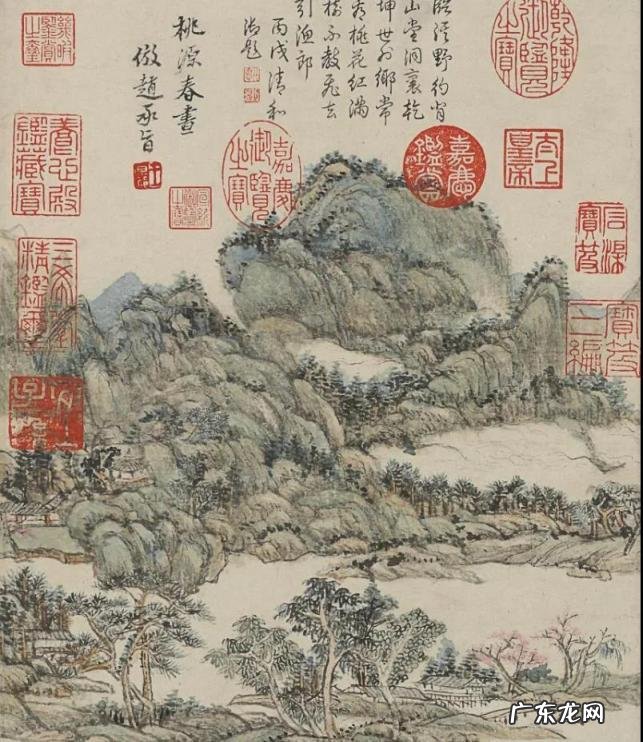 臨溪野約肖
山堂洞裏乾
坤世外鄉常
有桃花紅滿
樹不教飛去
引漁郎
丙戌清和
御題
桃源春晝
倣趙承旨
乾隆御覽之寶
太上皇帝
石渠寶笈
寶笈三編
嘉慶鑑賞
嘉慶御覽之寶
養心殿鑑藏寶
三希堂精鑑璽
广东龙网